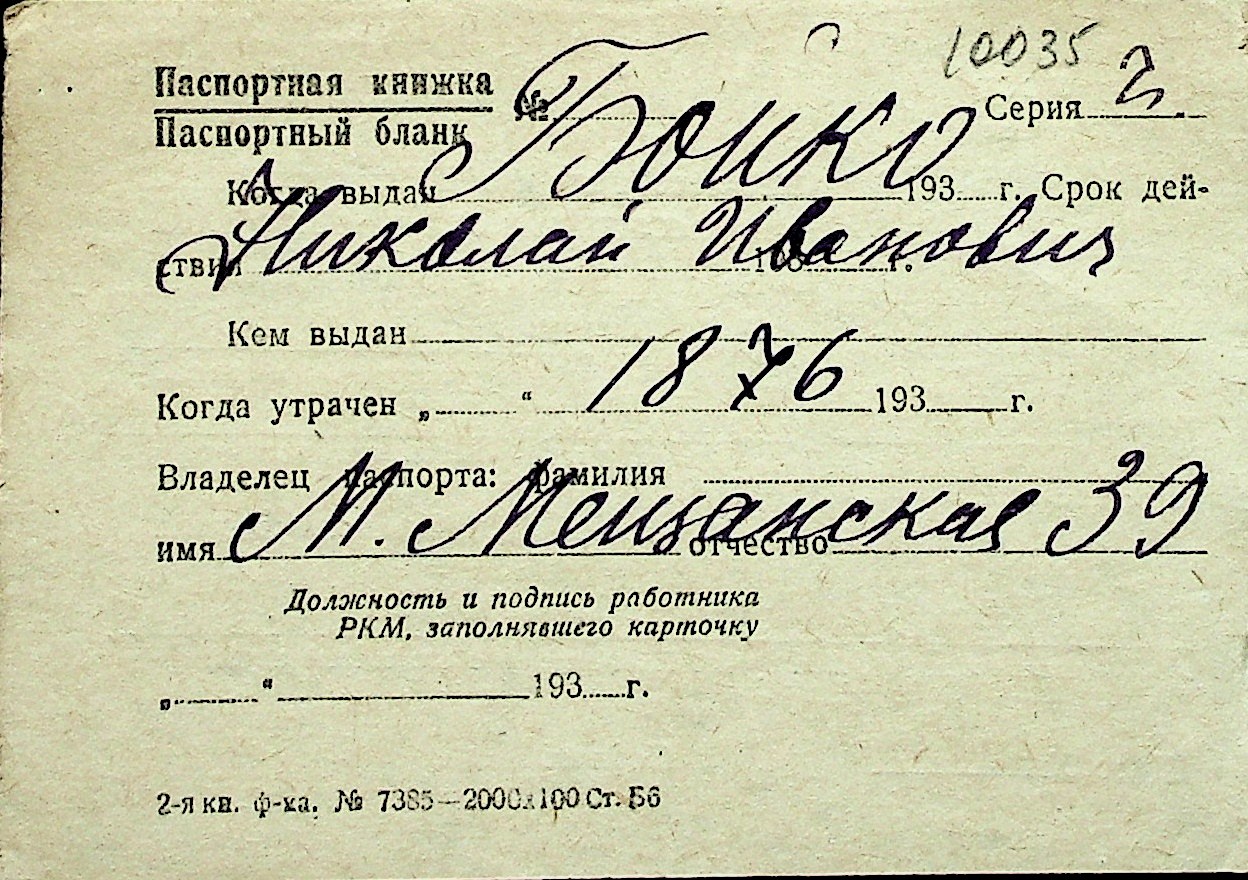 10035
Паспортная книжка
Паспортный бланк
№ Бойко Серия
Когда выдан 193 г. Срок дей-
ствия Николай Иванович 193 г.
Кем выдан
1876
Когда утрачен „ “ 193 г.
Владелец паспорта: фамилия
М. Мещанская 39
имя отчество
Должность и подпись работника
РКМ, заполнявшего карточку
„ “ 193 г.
2-я кн. ф-ка. № 7385—2000х100 Ст. Б6